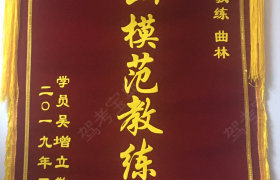 教练 曲林
模范教练
学员吴增立
二〇一九年
驾考宝